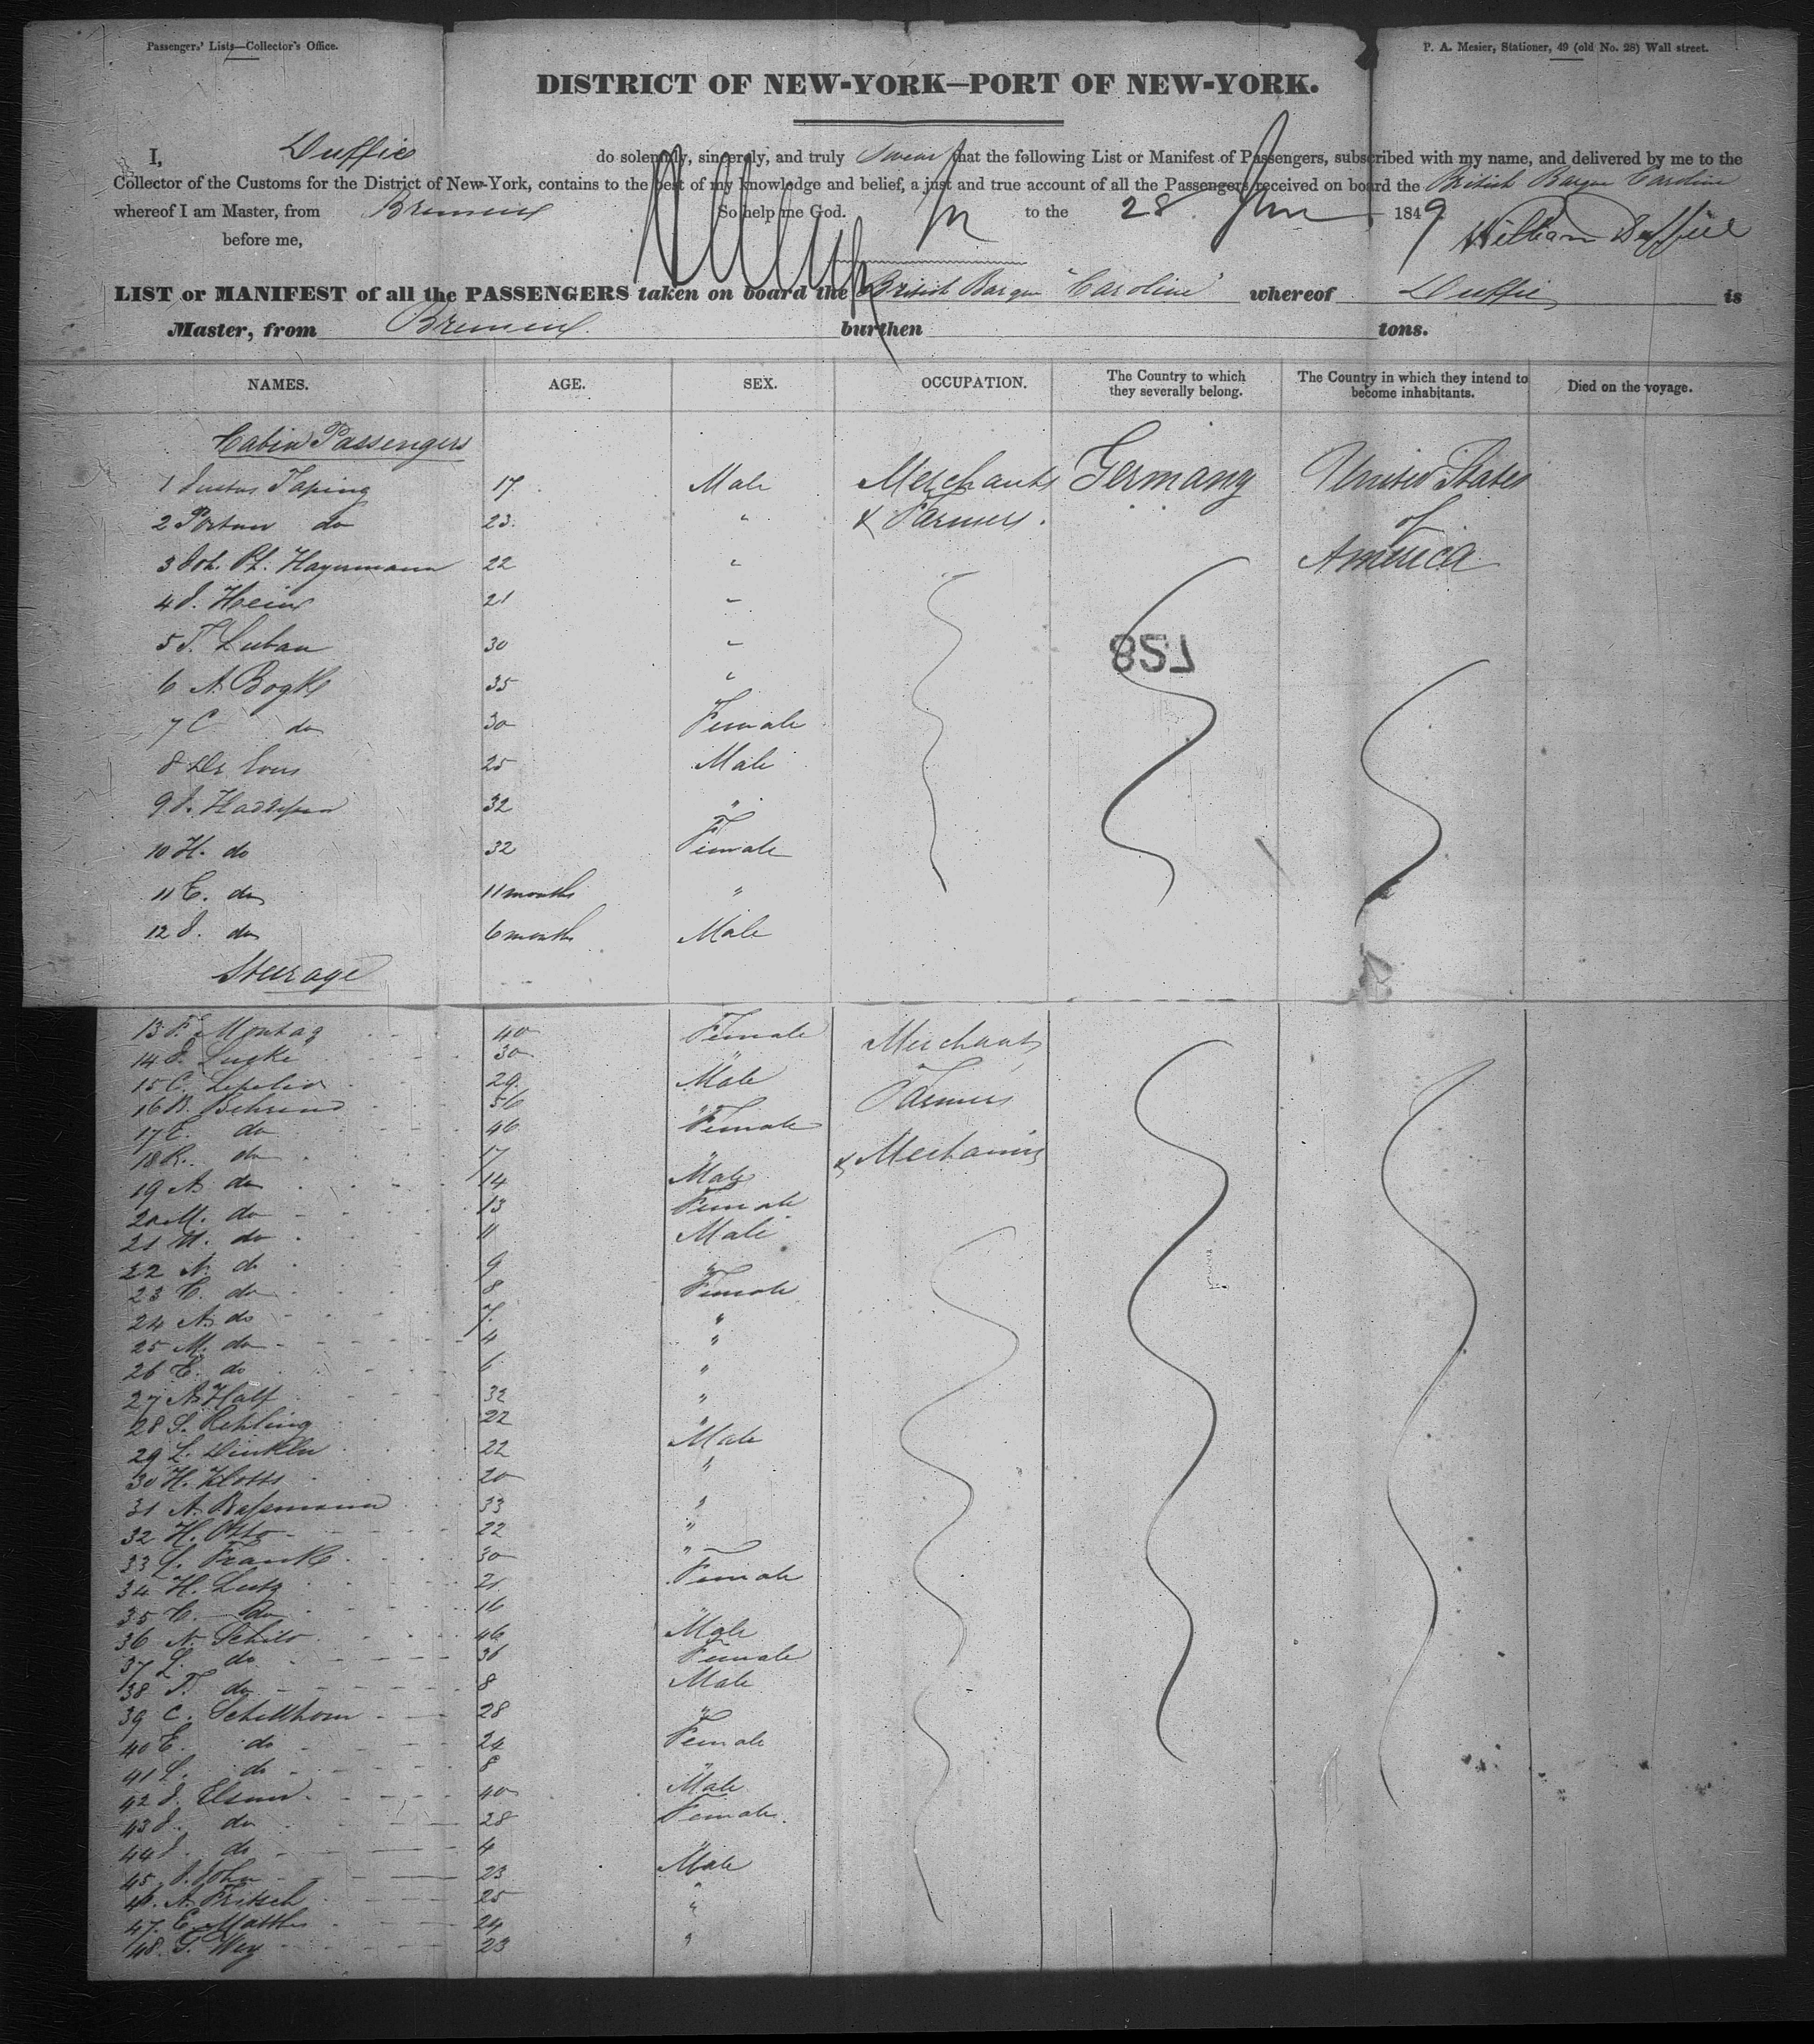 Passengers' Lists—Collector's Office.
P. A. Mesier, Stationer, 49 (old No. 28) Wall street.
DISTRICT OF NEW-YORK—PORT OF NEW-YORK.
I, Duffie do solemnly, sincerely, and truly swear that the following List or Manifest of Passengers, subscribed with my name, and delivered by me to the
Collector of the Customs for the District of New-York, contains to the best of my knowledge and belief, a just and true account of all the Passengers received on board the British Barque Caroline
whereof I am Master, from Bremen So help me God. to the 28 1849
before me, William Duffie
LIST or MANIFEST of all the PASSENGERS taken on board the British Barque "Caroline" whereof Duffie is
Master, from Bremen burthen tons.
NAMES. AGE. SEX. OCCUPATION. The Country to which they severally belong. The Country in which they intend to become inhabitants. Died on the voyage.
Cabin Passengers
1 Justus Toping 17 Male Merchants Germany United States
2 do 23 " & Farmers. of
3 Joh. 22 " America
4 J. Hein 21 "
5 T. Luban 30 "
6 A. Bogk 35 "
7 C do 30 Female
8 25 Male
9 J. 32 "
10 H. do 32 Female
11 C. do 11 months "
12 J. do 6 months Male
Steerage
13 F. Montag 40 Female Merchants
14 J. 30 "
15 C. 29 Male Farmers
16 B. Behrend 56 "
17 E. do 46 Female
18 R. do 17 " & Mechanics
19 A. do 14 Male
20 M. do 13 Female
21 do 11 Male
22 A. do 9 "
23 C. do 8 Female
24 A. do 7 "
25 M. do 4 "
26 E. do 6 "
27 A. Half 32 "
28 S. Rehling 22 "
29 L. Dinkler 22 Male
30 H. Klotts 20 "
31 A. Bassmann 33 "
32 H. Otto 22 "
33 L. Frank 30 "
34 H. Lutz 21 Female
35 C. do 16 "
36 N. Schild 46 Male
37 L. do 36 Female
38 T. do 8 Male
39 C. Schellhorn 28 "
40 E. do 24 Female
41 L. do 8 "
42 J. 40 Male
43 J. do 28 Female
44 J. do 4 "
45 J. John 23 Male
46. A. Fritsch 25 "
47. E. Matthes 24 "
48. T. Wey 23 "